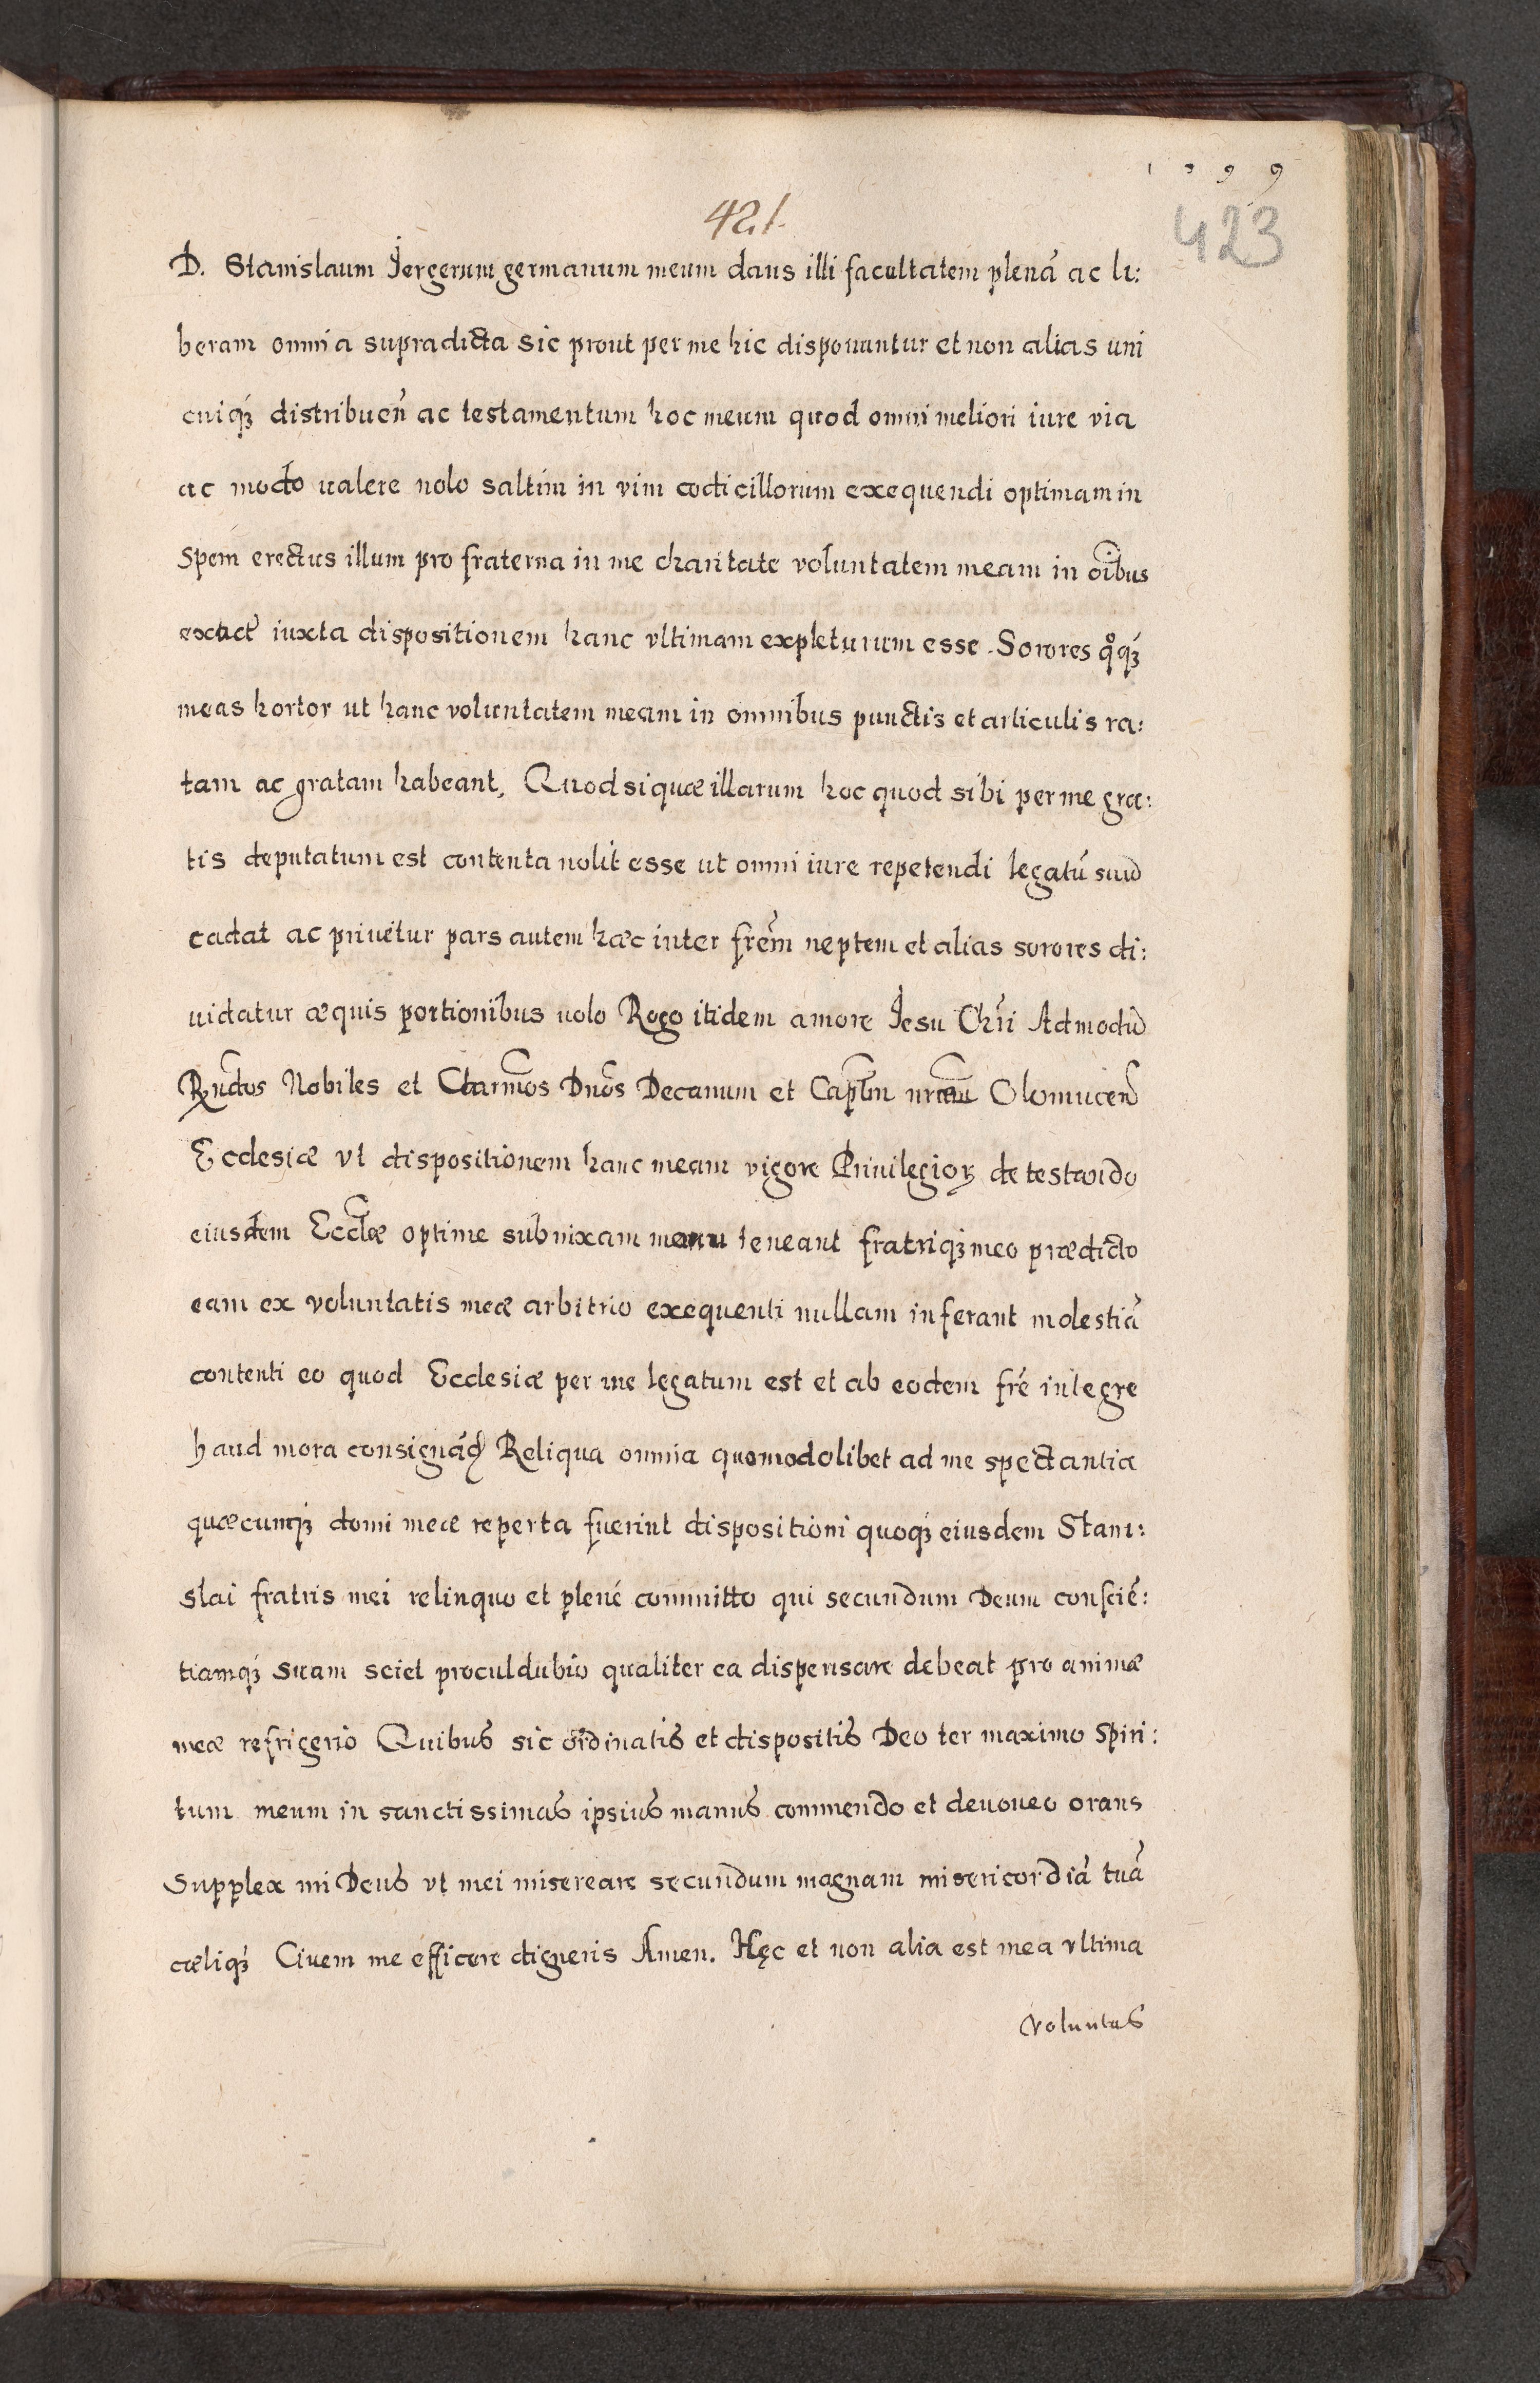 1 5 9 9
421.
423
D. Stanislaum Jergerum germanum meum dans illi facultatem plenã ac li:
beram omnia supradicta sic prout per me hic disponuntur et non alias uni
cuiqꝫ distribueñ ac testamentum hoc meum quod omni meliori iure via
ac modo ualere uolo saltim in vim codicillorum exequendi optimam in
Spem erectus illum pro fraterna in me charitate voluntatem meam in oĩbus
exactè iuxta dispositionem hanc vltimam expleturum esse. Sorores qͦqꝫ
meas hortor ut hanc voluntatem meam in omnibus punctis et articulis ra:
tam ac gratam habeant, Quod si quæ illarum hoc quod sibi per me gra:
tis deputatum est contenta nolit esse ut omni iure repetendi legatũ suũ
cadat ac priuetur pars autem hæc inter frẽm neptem et alias sorores di:
uidatur æquis portionibus uolo Rogo itidem amore Jesu Chr̃i Admodũ
Rñdos Nobiles et Clarm̃os Dnõs Decanum et Capl̃m nr̃um Olomuceñ
Ecclesiæ vt dispositionem hanc meam vigore Priuilegioꝝ de testando
eiusdem Eccl̃æ optime subnixam manu teneant fratriqꝫ meo prædicto
eam ex voluntatis meæ arbitrio exequenti nullam inferant molestiã
contenti eo quod Ecclesiæ per me legatum est et ab eodem frẽ integre
haud mora consignãd Reliqua omnia quomodolibet ad me spectantia
quæcumqꝫ domi meæ reperta fuerint dispositioni quoqꝫ eiusdem Stani:
slai fratris mei relinquo et plenè committo qui secundum Deum consciẽ:
tiamqꝫ suam sciet proculdubio qualiter ea dispensare debeat pro animæ
meæ refrigerio Quibus sic ordinatis et dispositis Deo ter maximo Spiri:
tum meum in sanctissimas ipsius manus commendo et deuoueo orans
Supplex mi Deus vt mei misereare secundum magnam misericordiã tuã
cæliqꝫ Ciuem me efficere digneris Amen. Hęc et non alia est mea vltima
voluntas